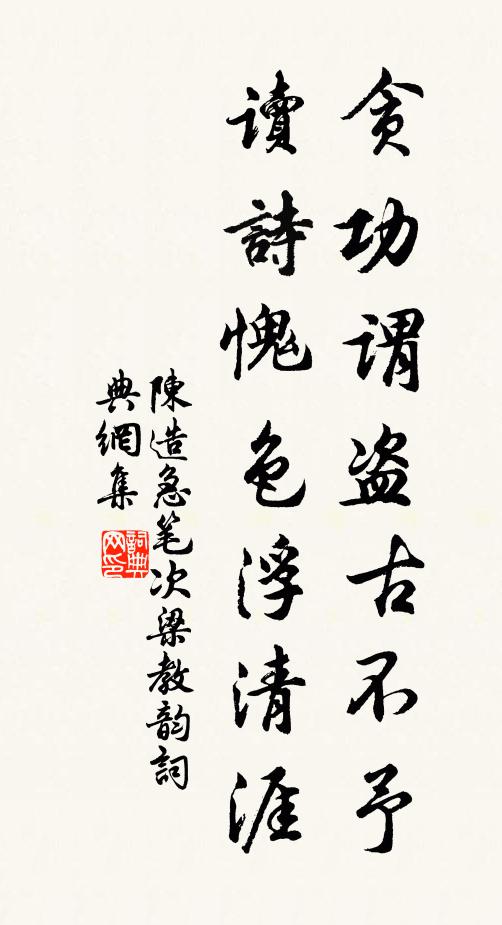 贪功谓盗古不予
读詩愧色浮清涯
陳造急笔次梁教韵詞
典網集
詞典网印